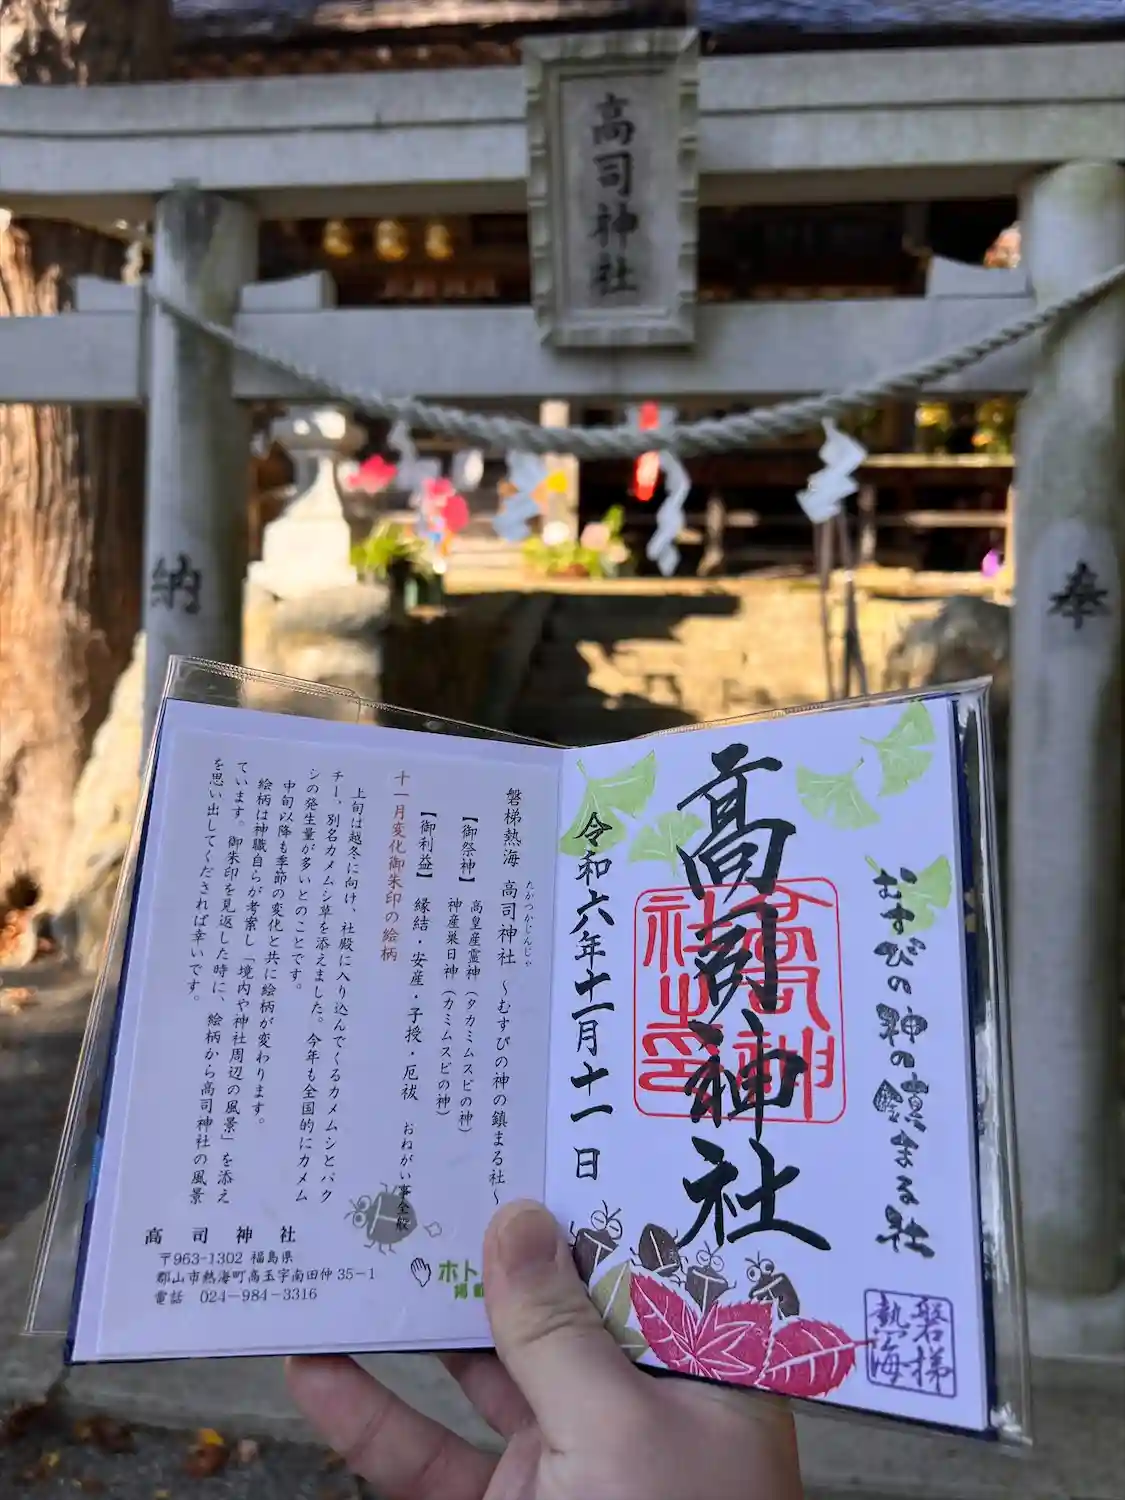 高司神社
奉
納
むすびの神の鎮まる社
高司神社
高司神社之印
令和六年十一月十一日
磐梯
熱海
磐梯熱海 高司神社 ～むすびの神の鎮まる社～
たかつかじんじゃ
【御祭神】 高皇産霊神(タカミムスビの神)
神産巣日神(カミムスビの神)
【御利益】 縁結・安産・子授・厄祓 おねがい事全般
十一月変化御朱印の絵柄
上旬は越冬に向け、社殿に入り込んでくるカメムシとパク
チー、別名カメムシ草を添えました。今年も全国的にカメム
シの発生量が多いとのことです。
中旬以降も季節の変化と共に絵柄が変わります。
絵柄は神職自らが考案し「境内や神社周辺の風景」を添え
ています。御朱印を見返した時に、絵柄から高司神社の風景
を思い出してくだされば幸いです。
高司神社
〒963-1302 福島県
郡山市熱海町高玉字南田仲35-1
電話 024-984-3316
ホト